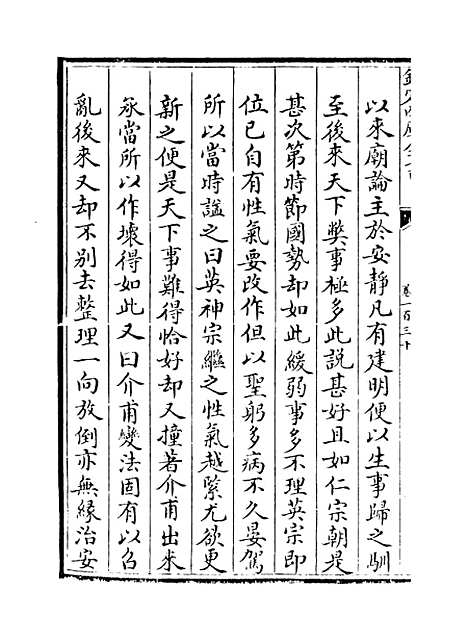 欽定四庫全書
卷一百三十
以來廟論主於安靜凡有建明便以生事歸之馴
至後來天下弊事極多此説甚好且如仁宗朝是
甚次第時節國勢却如此緩弱事多不理英宗即
位已自有性氣要改作但以聖躬多病不久晏駕
所以當時諡之曰英神宗繼之性氣越緊尤欲更
新之便是天下事難得恰好却又撞著介甫出來
承當所以作壞得如此又曰介甫變法固有以召
亂後來又却不别去整理一向放倒亦無緣治安